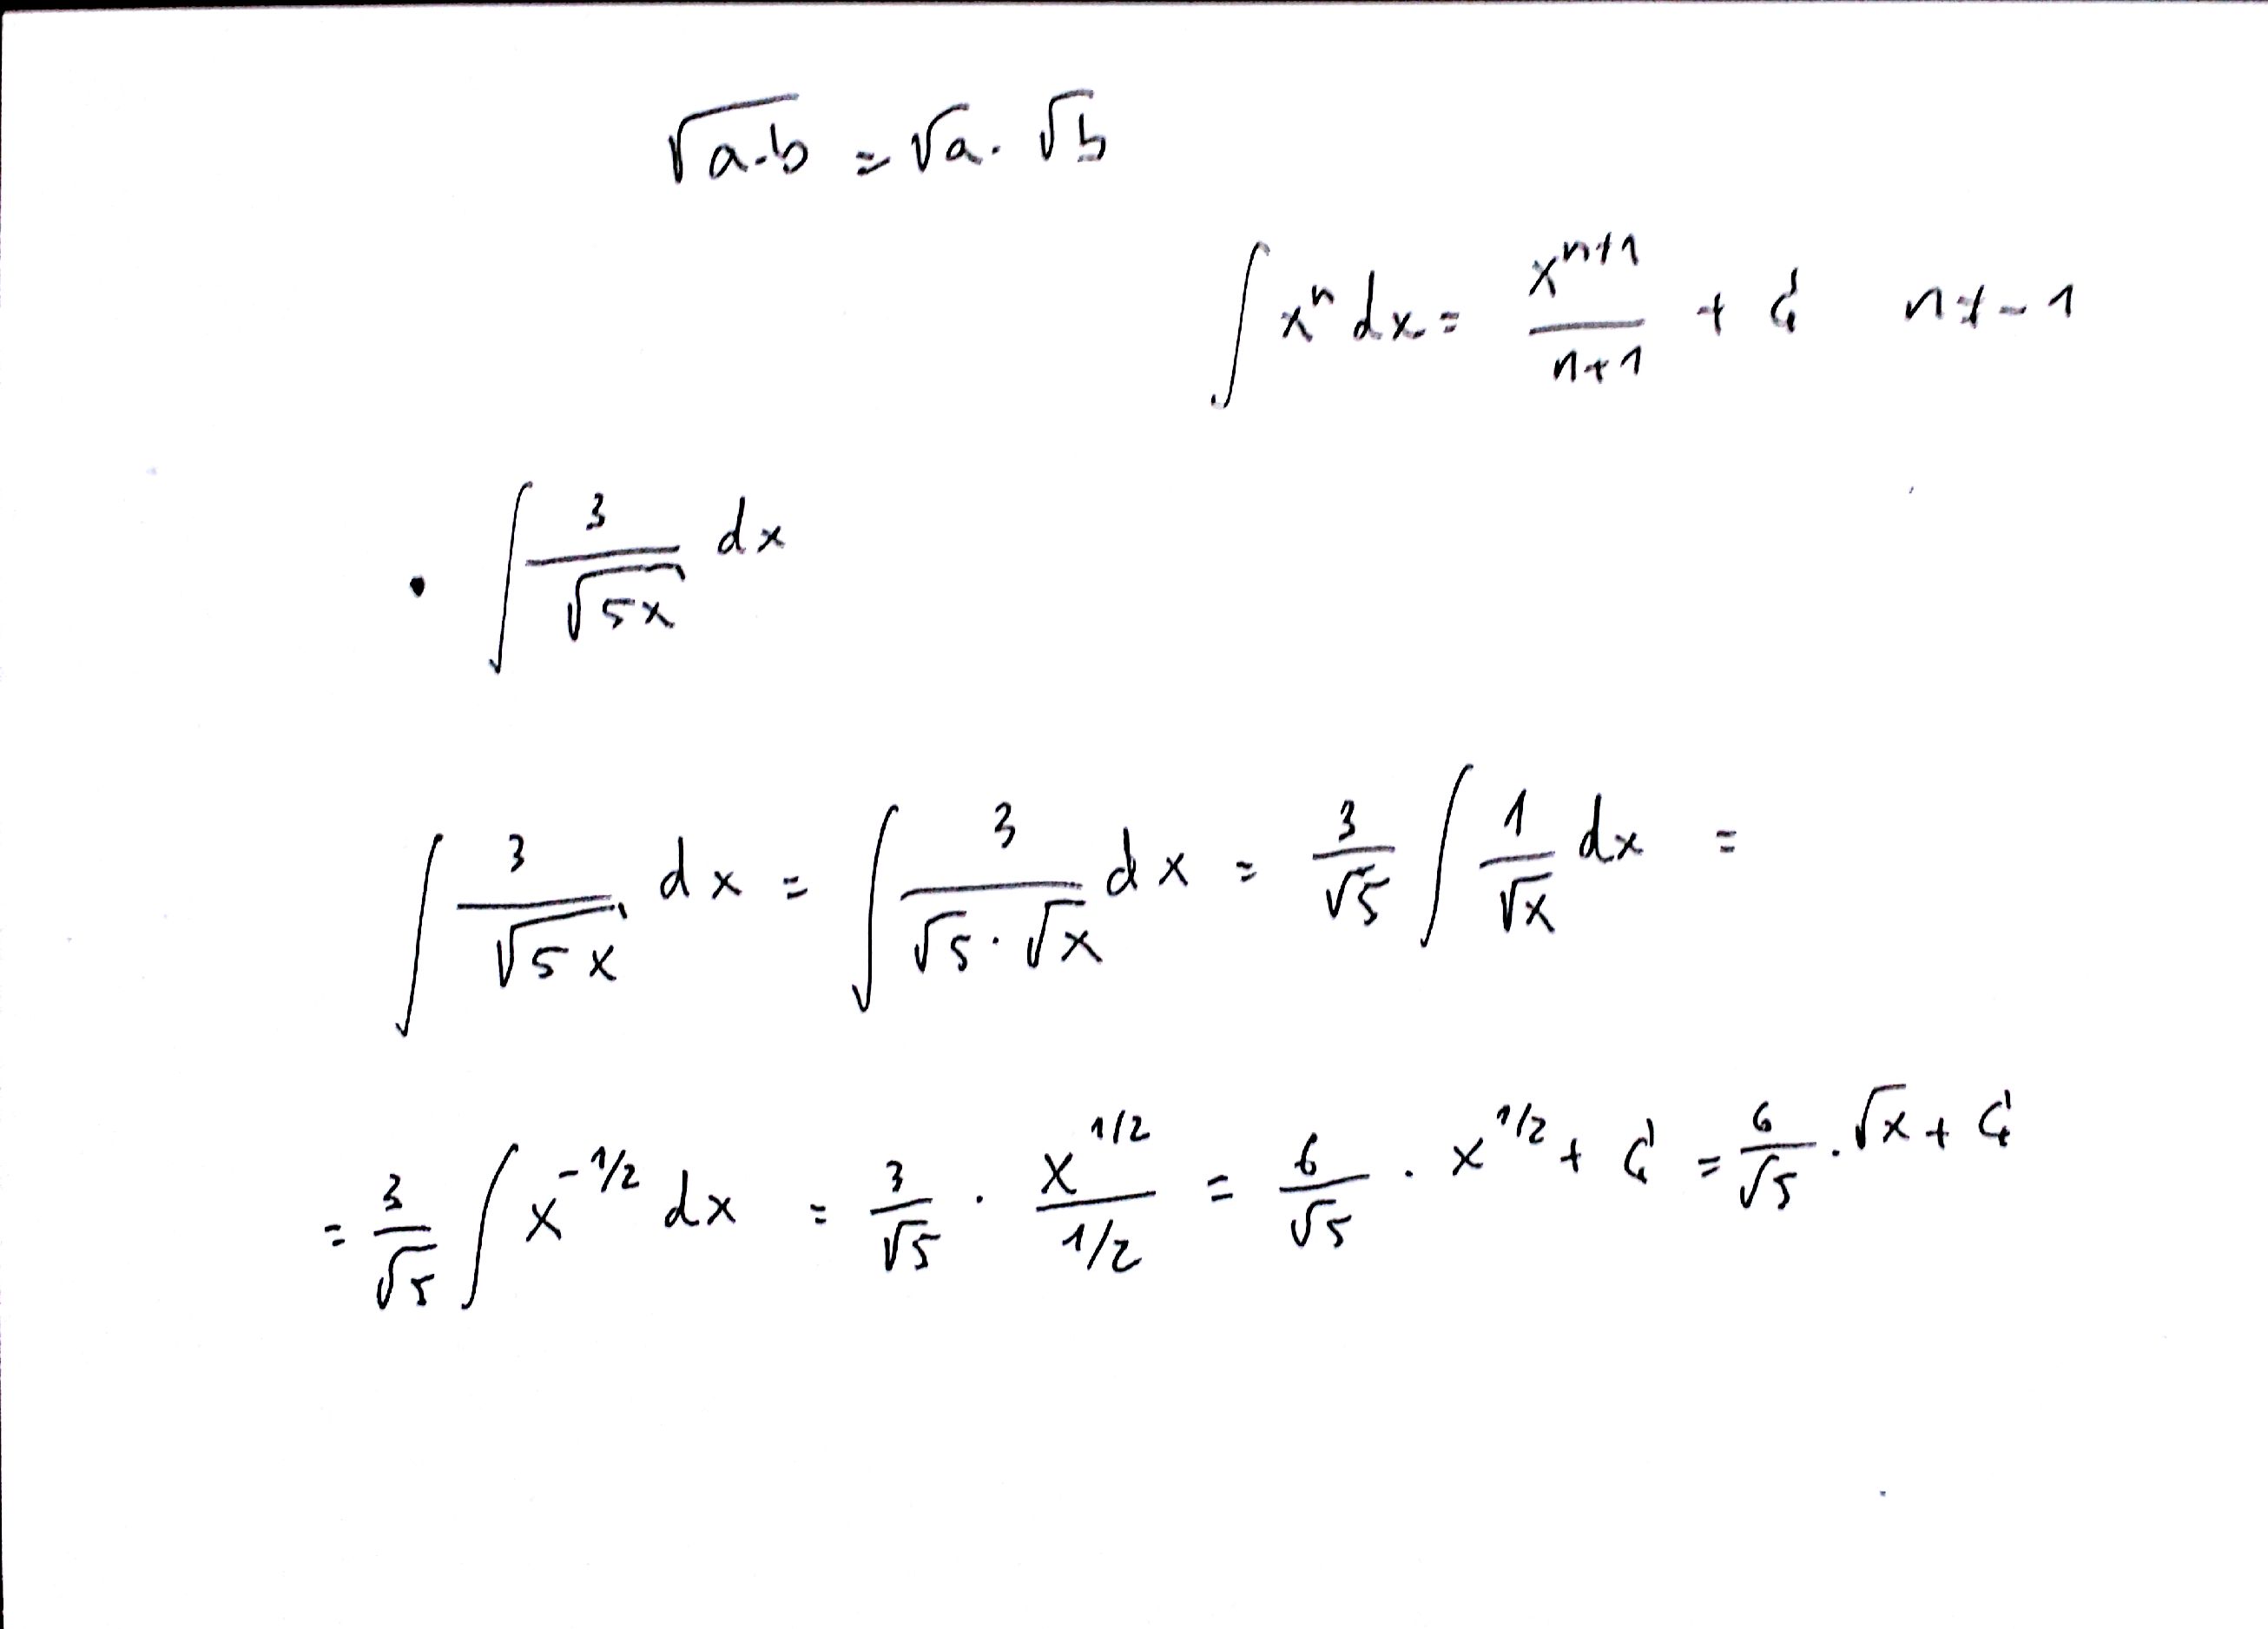 √(a·b) = √a · √b
∫ xⁿ dx = xⁿ⁺¹/(n+1) + C n ≠ -1
• ∫ 3/√(5x) dx
∫ 3/√(5x) dx = ∫ 3/(√5 · √x) dx = 3/√5 ∫ 1/√x dx =
= 3/√5 ∫ x^(-1/2) dx = 3/√5 · x^(1/2)/(1/2) = 6/√5 · x^(1/2) + C = 6/√5 · √x + C